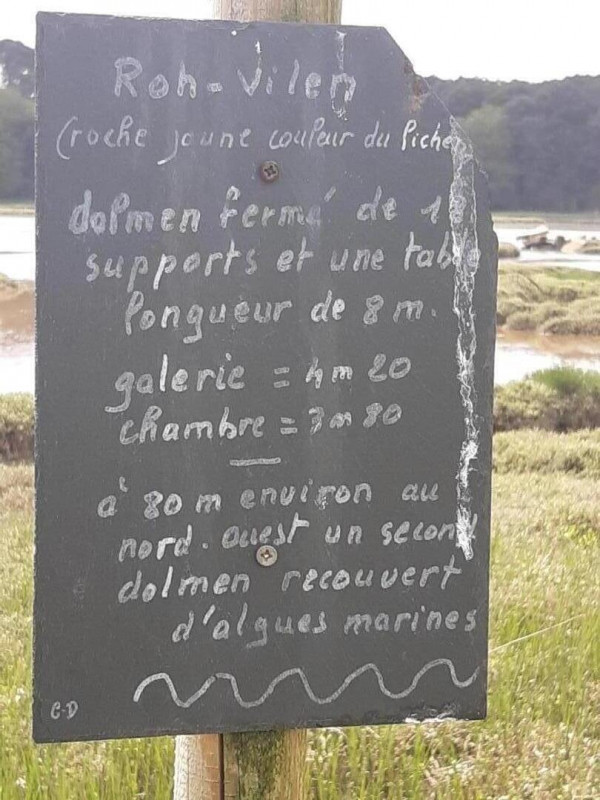 Roh-Vilen
(roche jaune couleur du lichen
dolmen fermé de 18
supports et une table
longueur de 8 m.
galerie = 4 m 20
chambre = 3 m 80
à 80 m environ au
nord. ouest un second
dolmen recouvert
d'algues marines
C-D